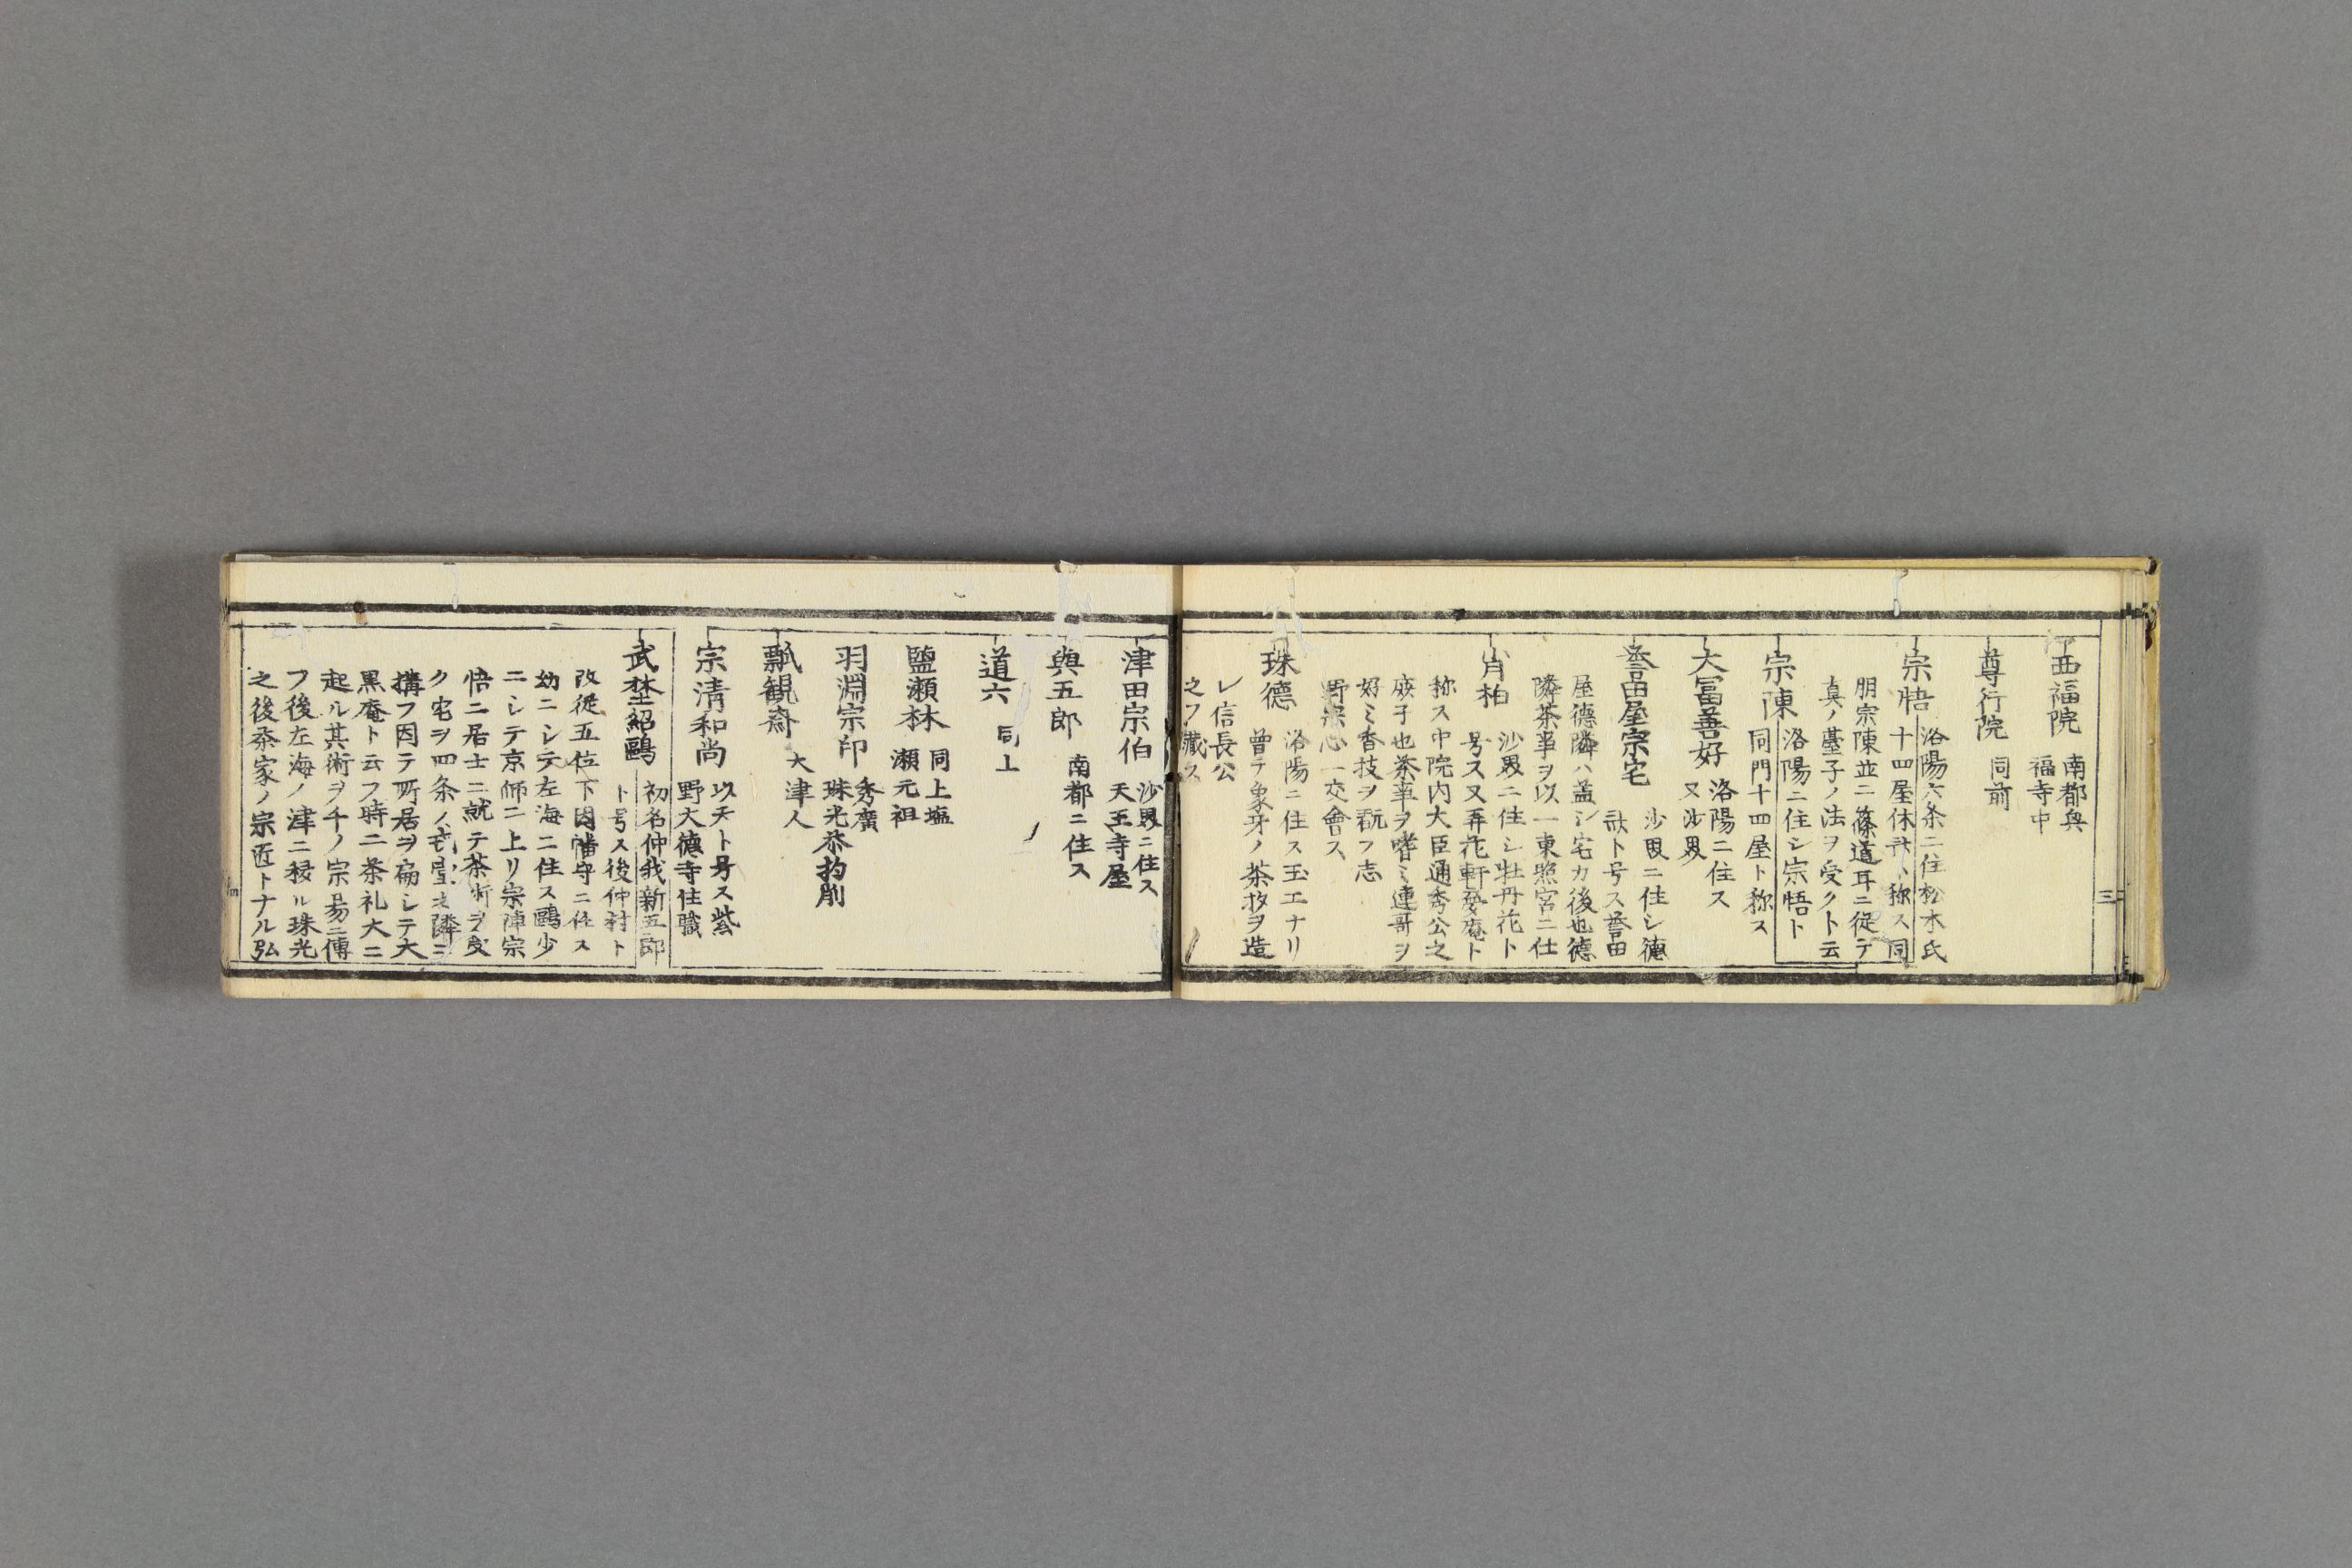 西福院
南都興
福寺中
尊行院
同前
宗悟
洛陽六条ニ住松本氏
十四屋休ト称ス同
朋宗陳並ニ篠道耳ニ従テ
真ノ臺子ノ法ヲ受クト云
宗陳
洛陽ニ住シ宗悟ト
同門十四屋ト称ス
大冨善好
洛陽ニ住ス
又沙界
誉田屋宗宅
沙界ニ住シ徳
ト号ス誉田
屋徳隣ハ蓋シ宅カ後也徳
隣茶事ヲ以一東照宮ニ仕
肖柏
沙界ニ住シ牡丹花ト
号ス又弄花軒夢庵ト
称ス中院内大臣通秀公之
庶子也茶事ヲ嗜ミ連哥ヲ
好ミ香技ヲ翫フ志
野宗心一交會ス
珠徳
洛陽ニ住ス玉工ナリ
曽テ象牙ノ茶杓ヲ造
レ信長公
之フ藏ス
津田宗伯
沙界ニ住ス
天王寺屋
與五郎
南都ニ住ス
道六
同上
鹽瀬林
同上塩
瀬元祖
羽淵宗印
秀廣
珠光茶杓削
瓢観斎
大津人
宗清和尚
以天ト号ス紫
野大徳寺住職
武埜紹鷗
初名仲我新五郎
ト号ス後仲村ト
改従五位下因幡守ニ任ス
幼ニシテ左海ニ住ス鷗少
ニシテ京師ニ上リ宗陳宗
悟ニ居士ニ就テ茶術ヲ受
ク宅ヲ四条ノ堂ノ隣ニ
搆フ因テ所居ヲ扁シテ大
黒庵ト云フ時ニ茶礼大ニ
起ル其術ヲ千ノ宗易ニ傳
フ後左海ノ津ニ移ル珠光
之後茶家ノ宗匠トナル弘
三